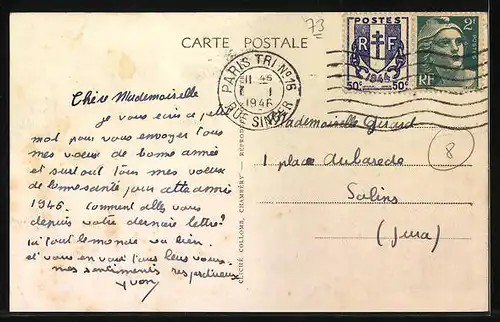 73
CARTE POSTALE
POSTES
RF
1944
50c 50c
2F
RF
PARIS TRI N°16
11 45
3 1
1946
RUE SINGER
Chère Mademoiselle
je vous écris ce petit
mot pour vous envoyer tous
mes voeux de bonne année
et surtout tous mes voeux
de bonne santé pour cette année
1946. Comment allez vous
depuis votre dernière lettre?
ici tout le monde va bien.
et vous en vous tous
mes sentiments respectueux
yvon
CLICHÉ COLLOMB, CHAMBÉRY — REPROD
Mademoiselle Girard
1 place Aubarede
Salins
(Jura)
8